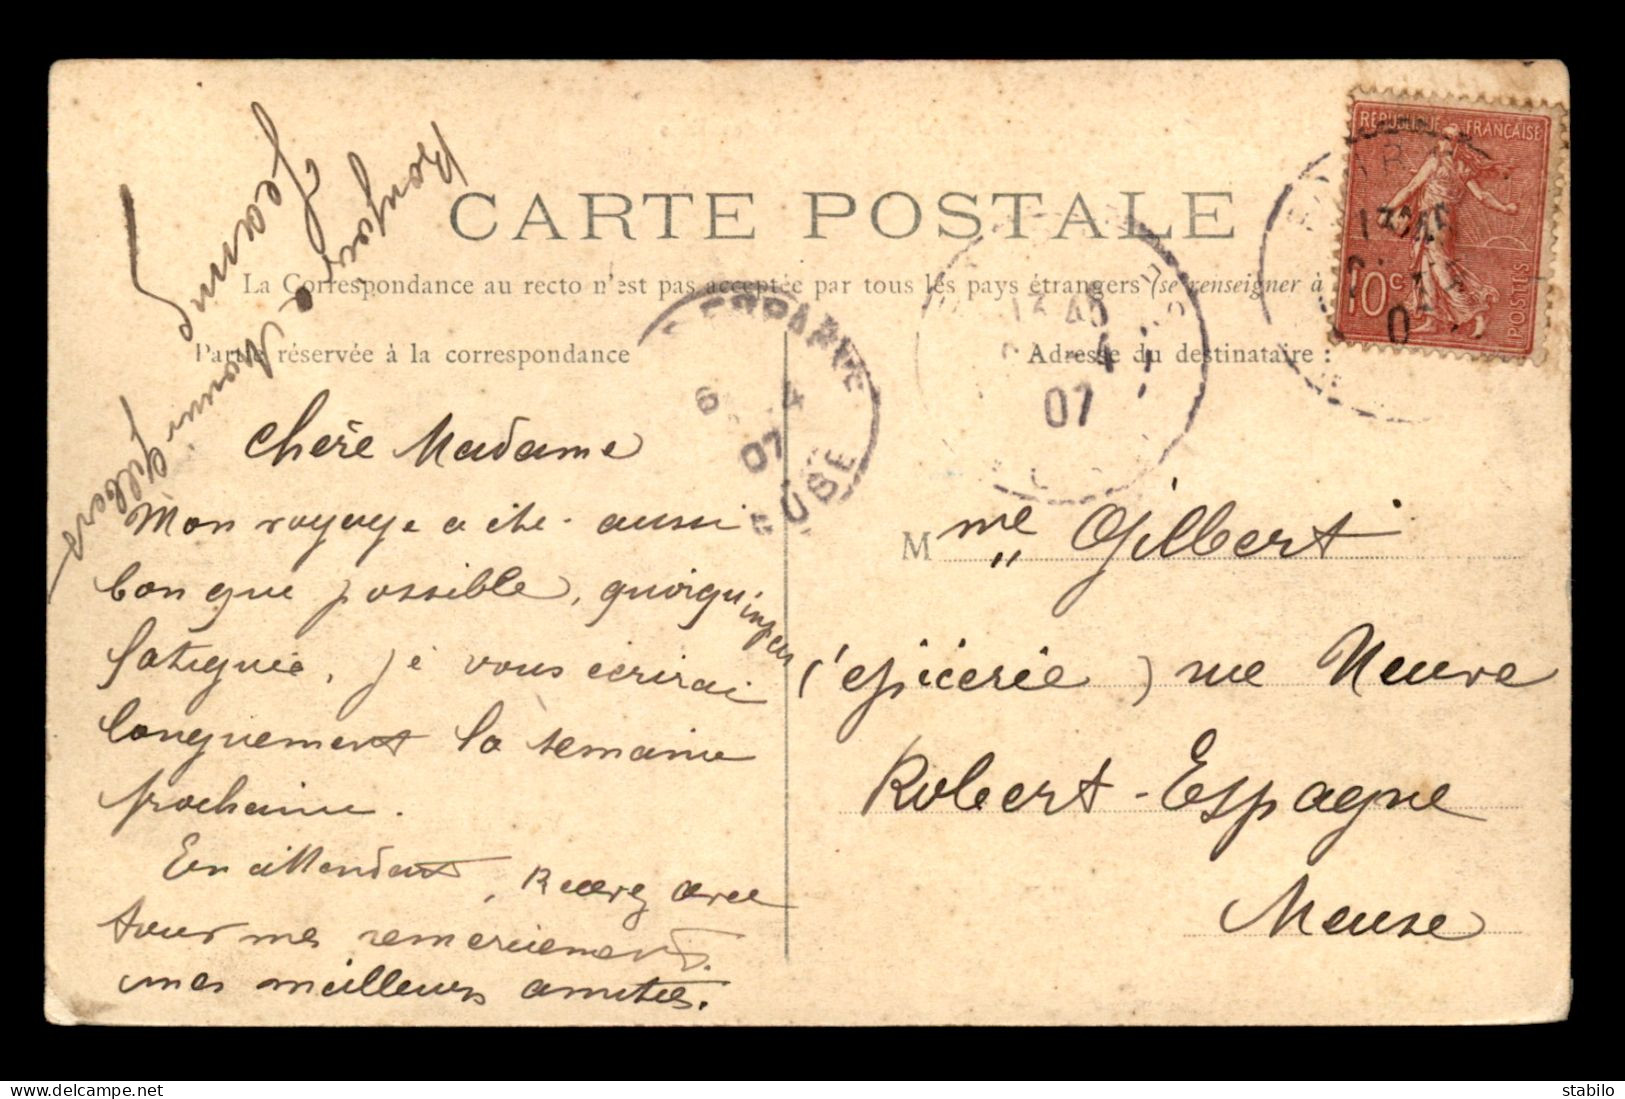 CARTE POSTALE
La Correspondance au recto n'est pas acceptée par tous les pays étrangers (se renseigner à
Partie réservée à la correspondance
Adresse du destinataire :
RÉPUBLIQUE FRANÇAISE
10c
POSTES
13 45
4
07
6 4
07
Bonjour à Monsieur Gilbert
Jeanne
Chère Madame
Mon voyage a été aussi
bon que possible, quoiqu'un peu
fatiguée, je vous écrirai
longuement la semaine
prochaine.
En attendant, Recevez avec
tous mes remerciements
mes meilleurs amitiés.
Mme Gilbert
(épicerie) rue Neuve
Robert-Espagne
Meuse
stabilo